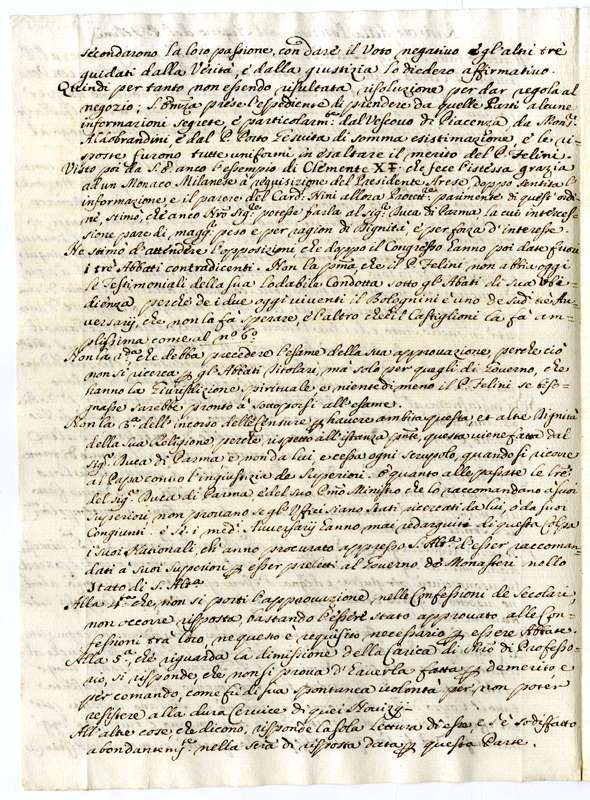 secondarono la loro passione, con dare il Voto negativo e gl'altri trè
guidati dalla Verità, è dalla giustizia lo diedero affirmativo.
Quindi per tanto non essendo risultata risoluzione per dar regola al
negozio; prese l'espediente di prendere da quelle Parti alcune
informazioni segrete, e particolarm.e dal Vescovo di Piacenza da Mon.r
Aldobrandini, è dal P. Porto Gesuita di somma esistimazione, è le ri-
sposte furono tutte uniformi in esaltare il merito del P. Felini.
Visto poi da anco l'essempio di Clemente XI che fece l'istessa grazia
ad un Monaco Milanese à requisizione del Presidente Arese doppo sentita l'
informazione, e il parere del Card. Nini allora Protett.e parimente di quest'ordi-
ne, stimò, che anco potesse farla al Sig. Duca di Parma la cui interces-
sione pare di magg.r peso e per ragion di Dignità, e per forza d'interesse.
Ne stimò d'attendere l'opposizioni, che doppo il Congresso hanno poi date fuori
i trè Abbati contradicenti. Non la p.ma che il P. Felini non abbia oggi
le Testimoniali della sua lodabile Condotta sotto gl'Abati di Sua Ubbi-
dienza, perche de i due oggi viventi il Bolognini è uno de Sud. trè Av-
versarij, che non la fà sperare, è l'altro che è il Castiglioni la fà am-
plissima come al n.o 6.o
Non la 2.da che debba precedere l'esame della sua approvazione, perche ciò
non si ricerca gl'Abbati Titolari, mà solo per quegli di Governo, che
hanno la Giurisdizione spirituale e nientedimeno il P. Felini se biso-
gnasse sarebbe pronto à sottoporsi all'esame.
Non la 3.a dell'incorso delle Censure havere ambita questa, et altre Dignità
della Sua Religione, perche, rispetto all'istanza p.nte, questa viene fatta dal
Sig.r Duca di Parma, e non da lui e cessa ogni scrupolo, quando si ricorre
al Papa contro l'ingiustizia de Superiori. E quanto alle passate le lre
del Sig.r Duca di Parma, e del suo Primo Ministro che lo raccomandano à suoi
Superiori, non provano se gl'Uffici siano stati ricercati da lui, ò da suoi
Congiunti. e i med.i Avversarij hanno mai redarguito di questa Colpa
i suoi Nazionali, ch'anno procurato appresso S. Alt.a d'esser raccoman-
dati à suoi Superiori esser preletti al Governo de Monasteri nello
Stato di S. Alt.a
Alla 4.a che, non si porti l'approvazione nelle Confessioni de Secolari,
non occorre risposta, bastando l'essere stato approvato alle Con-
fessioni trà loro, ne questo è requisito necessario essere Abbate.
Alla 5.a, che riguarda la dimissione della Carica di di Professo-
rio, si risponde, che non si prova d'haverla fatta demerito e
per comando, come fù di sua spontanea volontà per non potér
resistere alla dura Cervice di quei Novizzj
All'altre cose, che dicono, risponde la sola lettura di esse, e s'è sodisfatto
abondantem.e nella Scrã di risposta data questa Parte.